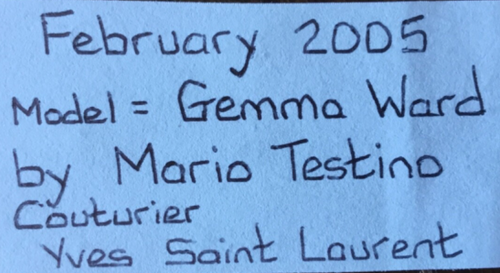 February 2005
Model = Gemma Ward
by Mario Testino
Couturier
Yves Saint Laurent